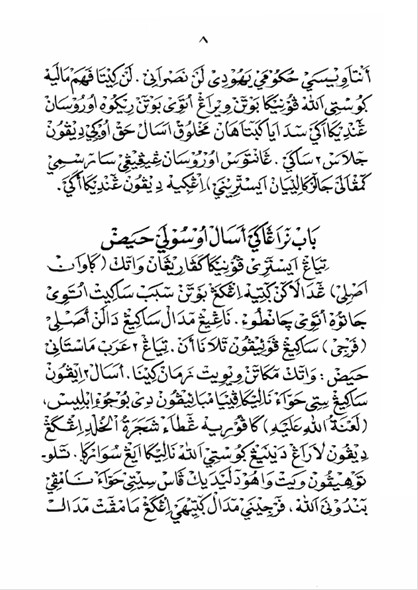 ٨
أنتاويسيڤي حكومي يهودي لن نصراني . لن كيتا فهم مالية
كوستي الله ڤونيكا بوتن ويراڠ أتوي بوتن ريكوه اوروسان
ڠنديكاأكي سدايا كبتاهان مخلوق اسال حق اوڮي ديڤون
جلاس٢ ساكي . ڠانتوس اوروسان غيڠيڠي سارسمي
كمڤاني جالركاليان ايستريني) اڠكيه ديڤون ڠنديكاأكي.
باب نراڠاكي أسال اوسولي حيض
تياڠ ايستري ڤونيكا كڤاريڠان واتك (كاوان
اصلي) غدالاكن ڮتيه اڠكڠ بوتن سبب ساكيت اتوي
جاتوه اتوي چانطوء . ناڠيڠ مدال ساكيڠ دالن أصلي
(فرجي) ساكيڠ ڤوليڤون تلانا أن . تياڠ٢ عرب ماستاني
حيض : واتك مكاتن ويويت زمان كينا . اسال٢ ايڤون
ساكيڠ ستي حواء ناليكا ڤينيامبائيڤون دي بوجوء ابليس،
(لعنة الله عليه) كاڤوريه ڠطاء شجرة الخلد اڠكڠ
ديڤون لاراڠ دينيڠ كوستي الله ناليكا ايڠ سوارڮا . نلو
توهيڤون ويت واهو دليديك ڤاس سيتي حواء نامڤي
بندوني الله ، فرجيني مدال ڮتيهي اڠكڠ مامڤت مدال